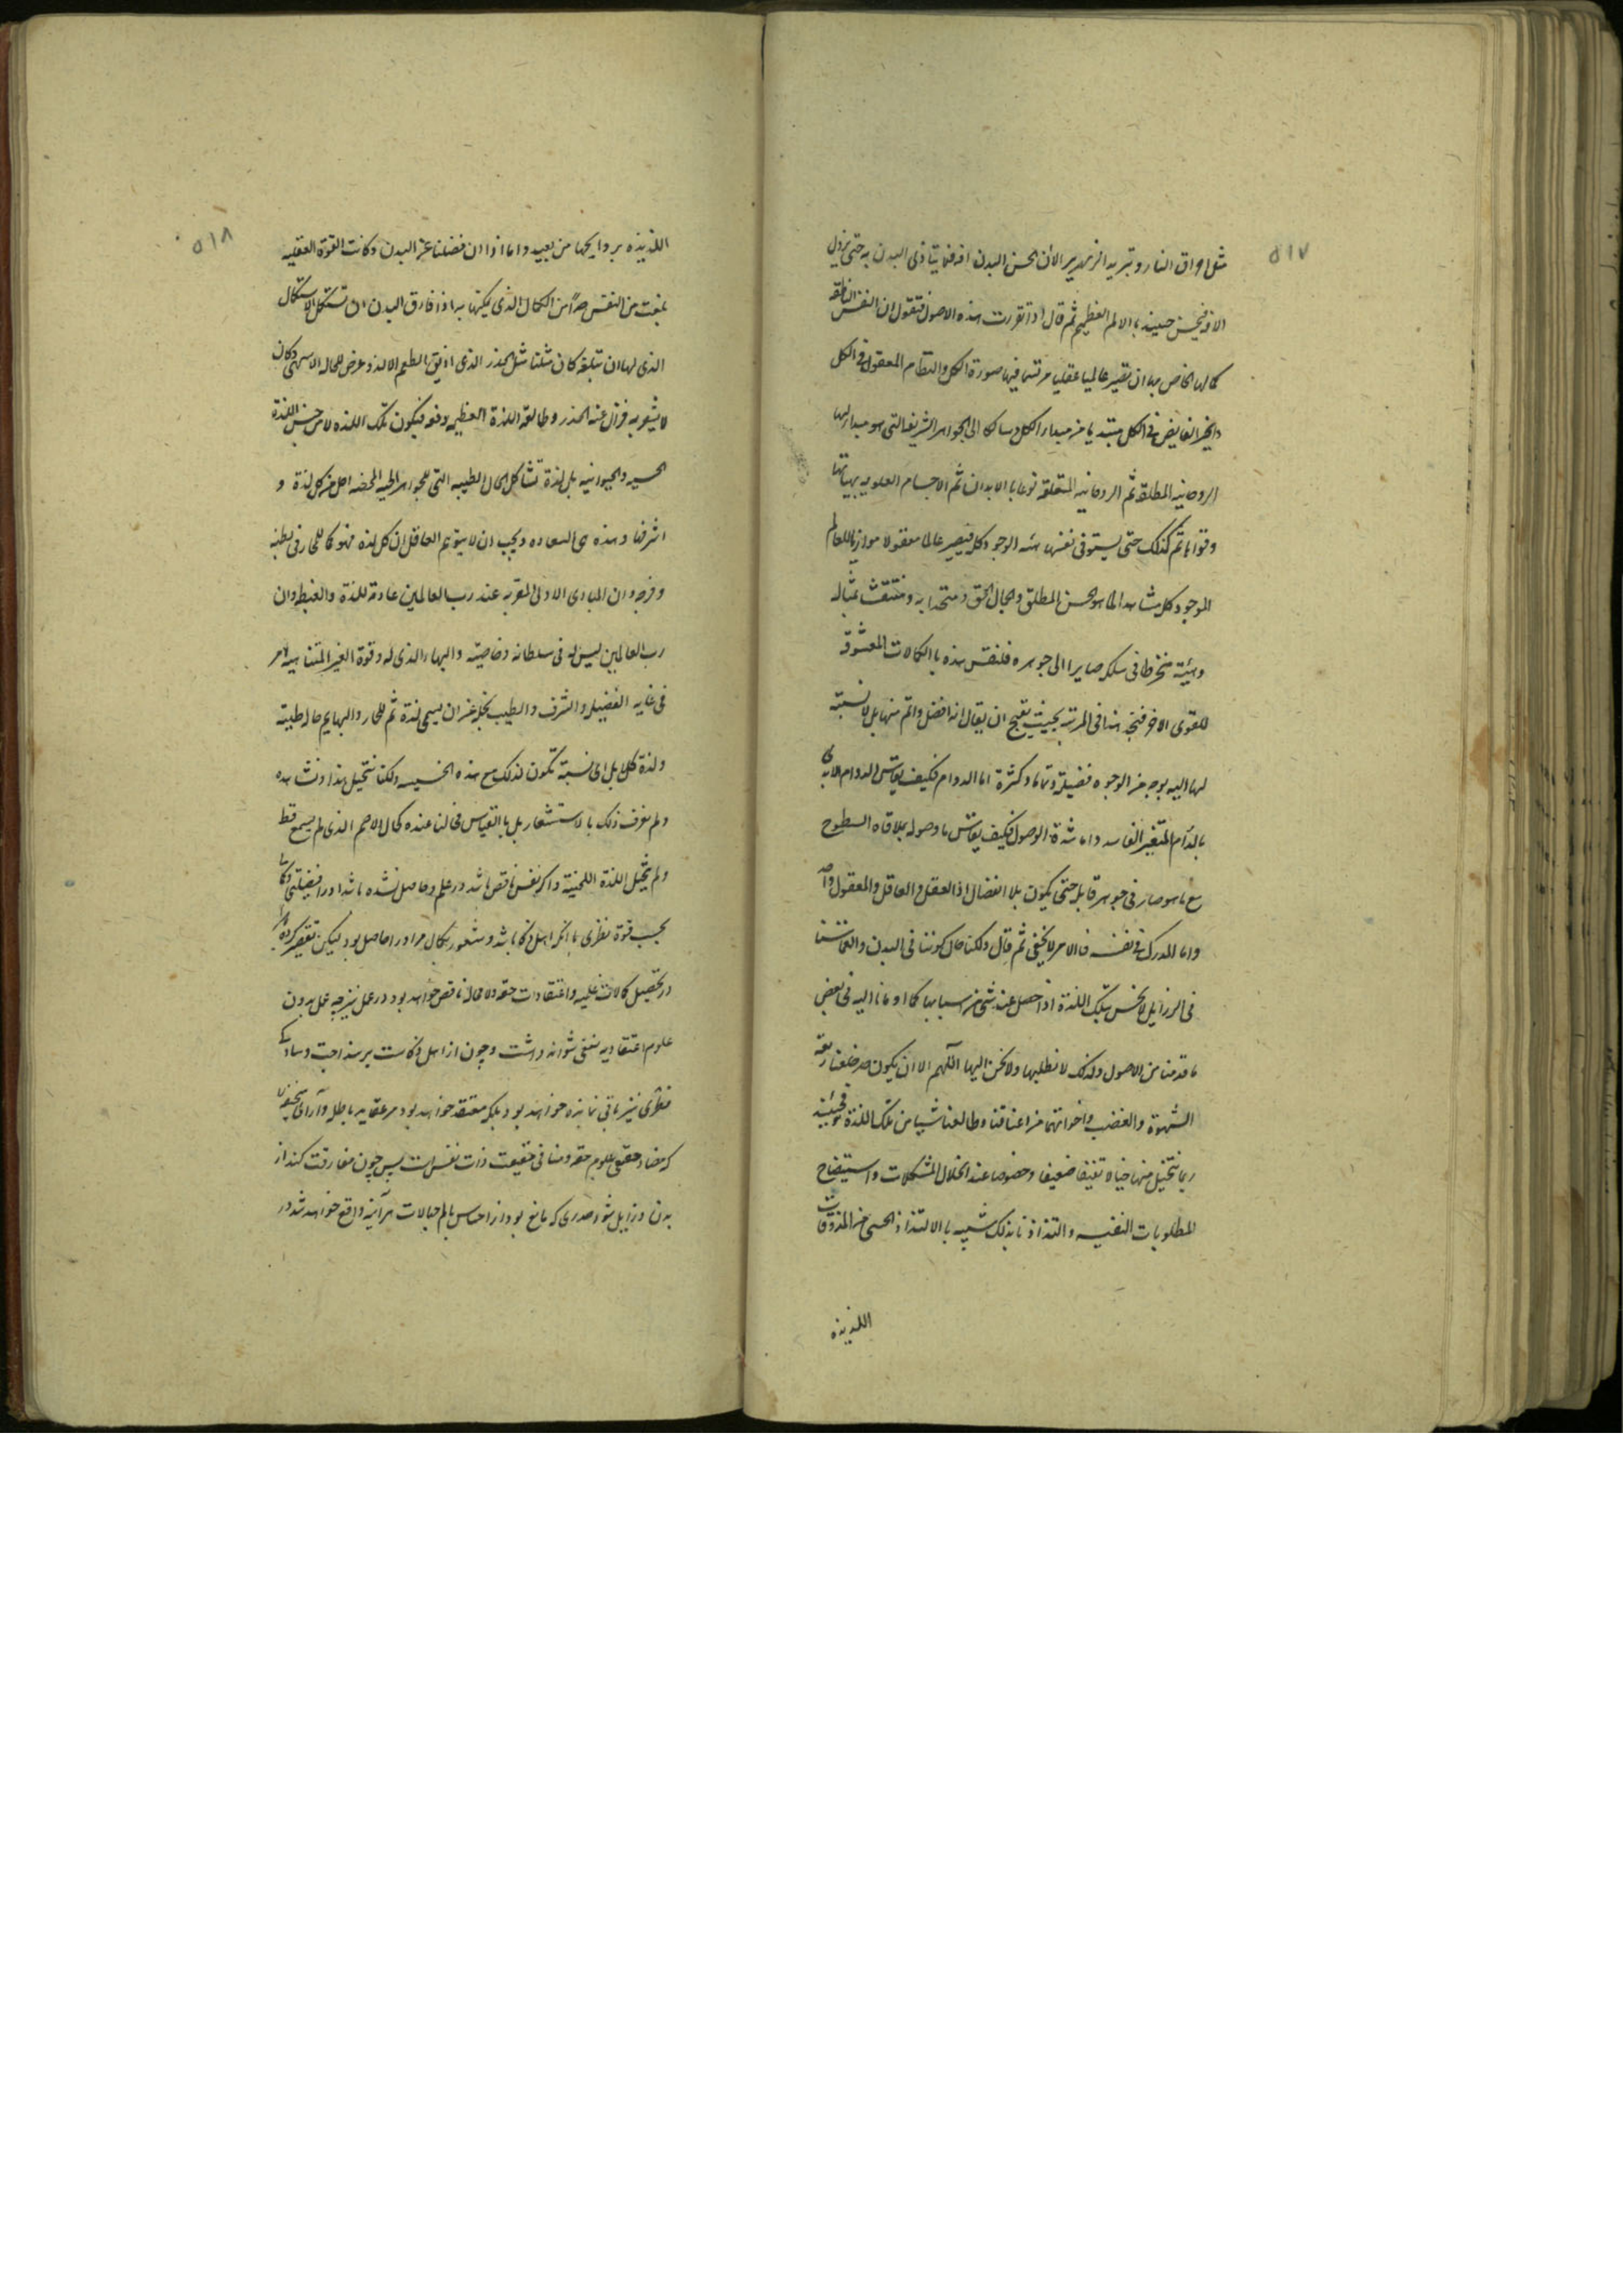 ٥١٧
مثل احراق النار وتبريد الزمهرير الا ان الحس البدن افه فلا يتاذى البدن به حتى يزول
الافه فيحس حينئذ بالالم العظيم ثم قال اذا تقررت هذه الاصول فنقول ان النفس الناطقه
كمالها الخاص بها ان تصير عالما عقليا مرتسما فيها صورة الكل والنظام المعقول فى الكل
والخير الفايض فى الكل مبتديا من مبدا الكل وسالكا الى الجواهر الشريفه التى هو مبدا لها
الروحانيه المطلقه ثم الروحانيه المتعلقه نوعا بالابدان ثم الاجسام العلويه بهياتها
وقواها ثم كذلك حتى يستوفى نفسها هيئه الوجود كله فيصير عالما معقولا موازيا للعالم
الموجود كله مشاهدا لما هو الحسن المطلق والجمال الحق ومتحدا به ومنتقشا بمثاله
وهيئته منخرطا فى سلكه صايرا الى جوهره فلنقس هذه بالكمالات المعشوقه
للقوى الاخر فنجد هذا فى المرتبه بحيث يقبح ان يقال انه افضل واتم منها بل لا نسبة
لها اليه بوجه من الوجوه فضيلة وتماما وكثرة اما الدوام فكيف يقاس الدوام الابدى
بالدوام المتغير الفاسد واما شدة الوصول فكيف يقاس ما وصوله بملاقاه السطوح
مع ما هو صار فى جوهر قابله حتى يكون بلا انفصال اذ العقل والعاقل والمعقول واحد
واما المدرك فى نفسه فالامر لا يخفى ثم قال ولكنا حال كوننا فى البدن وانغماسنا
فى الرزايل لا نحس بتلك اللذة اذا حصل عندنا شى من اسبابها كما اومانا اليه فى بعض
ما قدمنا من الاصول ولذلك لا نطلبها ولا نحن اليها اللهم الا ان يكون قد خلعنا ربقه
الشهوة والغضب واخواتهما من اعناقنا وطالعنا شيئا من تلك اللذة فحينئذ
ربما نتخيل منها خيالا طفيفا ضعيفا وخصوصا عند انحلال المشكلات واستيضاح
المطلوبات النفسيه والتذاذنا بذلك شبيه بالالتذاذ الحسى من المذوقات
اللذيذه
٥١٨
اللذيذه بروايحها من بعيد واما اذا انفصلنا عن البدن وكانت القوة العقليه
بلغت من النفس حدا من الكمال الذى يمكنها به اذا فارق البدن ان تستكمل الاستكمال
الذى لها ان تبلغه كان مثلنا مثل الخدر الذى اذيق الطعم الالذ وعرض للحاله الاشهى وكان
لا يشعر به فزال عنه الخدر وطالعه اللذة العظيمه دفعه فيكون تلك اللذه لا من جنس اللذة
الحسيه والحيوانيه بل لذة تشاكل الحال الطيبه التى للجواهر الحيه المحضه اجل من كل لذة و
اشرفها وهذه هى السعاده ويجب ان لا يتوهم العاقل ان كل لذه فهو كما للحمار فى بطنه
وفرجه وان المبادى الاولى المقربه عند رب العالمين عادمة للذة والغبطه وان
رب العالمين ليس له فى سلطانه وخاصيته والبهاء الذى له وقوة الغير المتناهيه امر
فى غايه الفضيله والشرف والطيب نجله عن ان يسمى لذة ثم للحمار والبهايم حاله طيبه
ولذة كلا بل اى نسبة تكون لذلك مع هذه الخسيسه ولكنا نتخيل هذا ونشاهده
ولم نعرف ذلك بالاستشعار بل بالقياس فحالنا عنده كحال الاصم الذى لم يسمع قط
ولم يتخيل اللذة اللحنية واكر نفس ناقص باشد در علم وحاصل نشده باشد اورا فضيلتى وكمالى
بحسب قوة نظرى با انكه اهل ذكا باشد وشعور بكمال مر اورا حاصل بود ليكن تقصير كرده باشد
در تحصيل كمالات علميه واعتقادات حقه لا محاله ناقص خواهد بود در عمل نيز چه عمل بدون
علوم اعتقاديه نفعى نتوانه داشت وچون از اهل ذكاست بر سذاجت وسادگى
فطرى نيز باقى نمانده خواهد بود بلكه معتقد خواهد بود مر عقايد باطله وآراى سخيفه
كه مضاد حقيقى علوم حقه ومنافى حقيقت ذات نفس است پس چون مفارقت كند از
بدن وزايل شود خدرى كه مانع بود از احساس بالم جهالات هر آينه واقع خواهد شد در